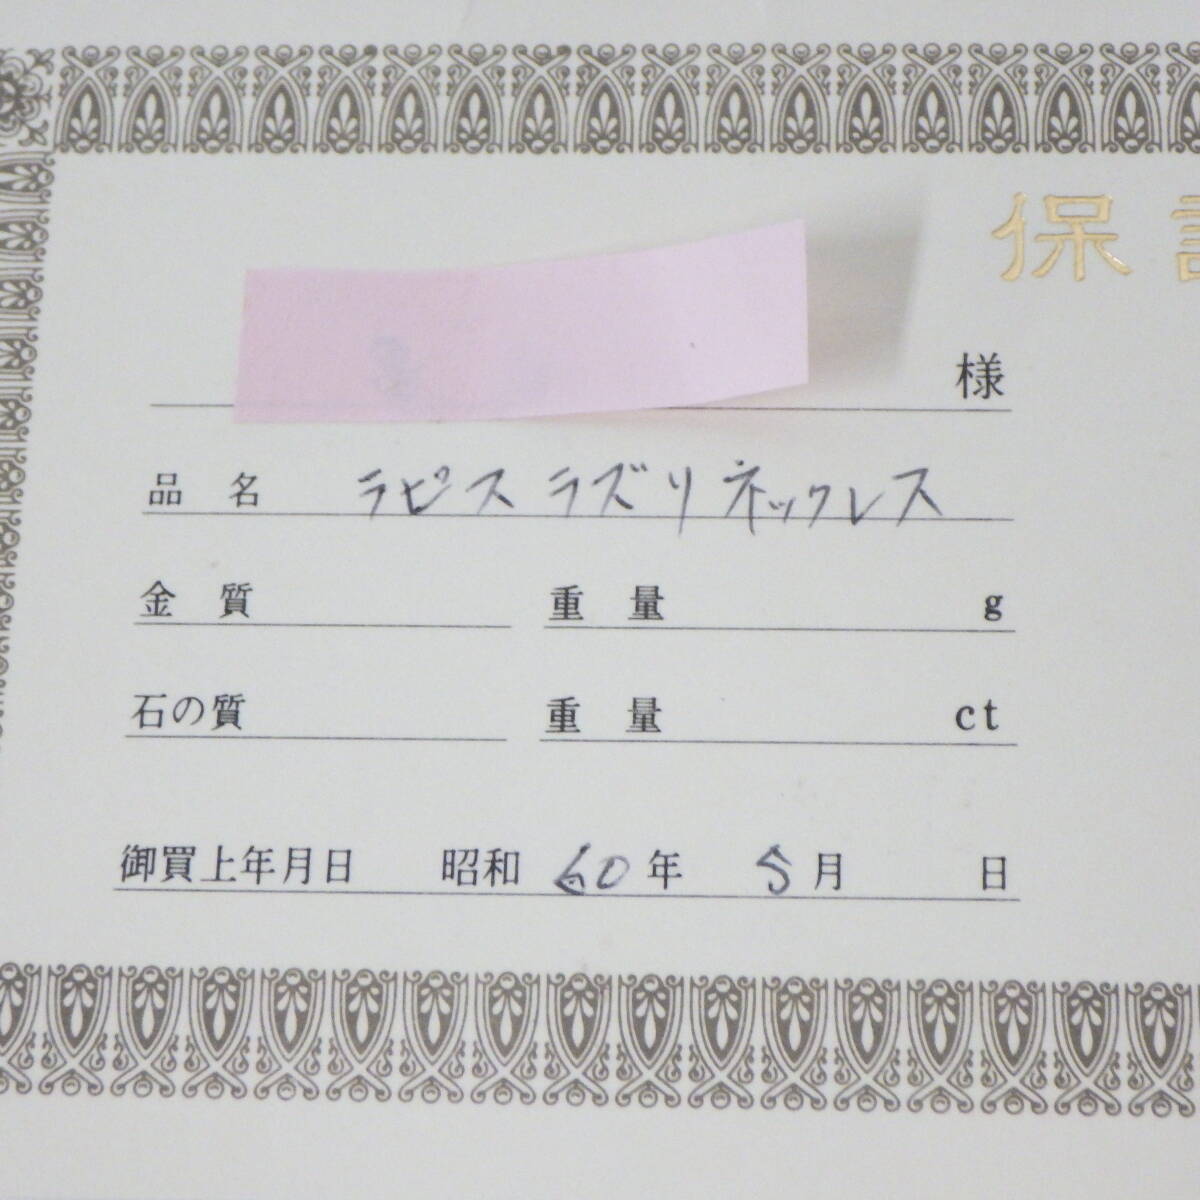 保
様
品名 ラピスラズリネックレス
金質 重量 g
石の質 重量 ct
御買上年月日 昭和60年 5月 日